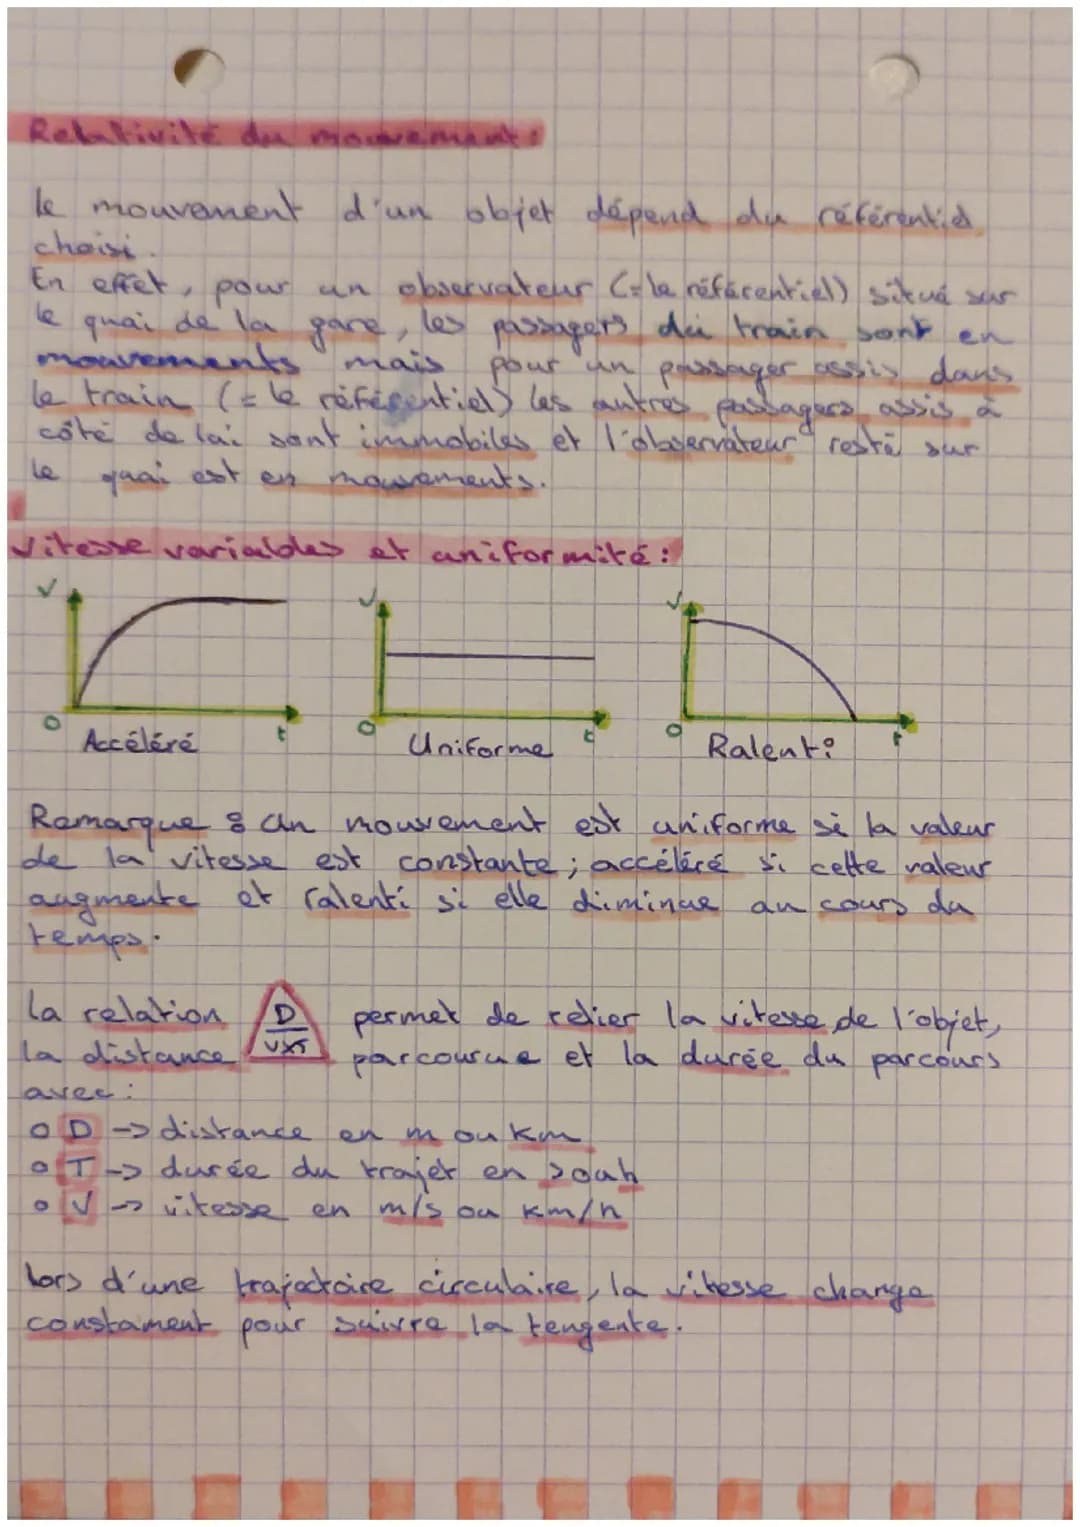 Relativité du mouvement :
le mouvement d'un objet dépend du référentiel
choisi.
En effet, pour un observateur (= le référentiel) situé sur
le quai de la gare, les passagers du train sont en
mouvements mais pour un passager assis dans
le train (= le référentiel) les autres passagers assis à
côté de lui sont immobiles et l'observateur resté sur
le quai est en mouvements.
Vitesse variables et uniformité :
V V V
0 t 0 t 0 t
Accéléré Uniforme Ralenti
Remarque : Un mouvement est uniforme si la valeur
de la vitesse est constante ; accéléré si cette valeur
augmente et ralenti si elle diminue au cours du
temps.
La relation D permet de relier la vitesse de l'objet,
la distance VxT parcourue et la durée du parcours
avec :
o D -> distance en m ou km
o T -> durée du trajet en s ou h
o V -> vitesse en m/s ou km/h
lors d'une trajectoire circulaire, la vitesse change
constament pour suivre la tengente.